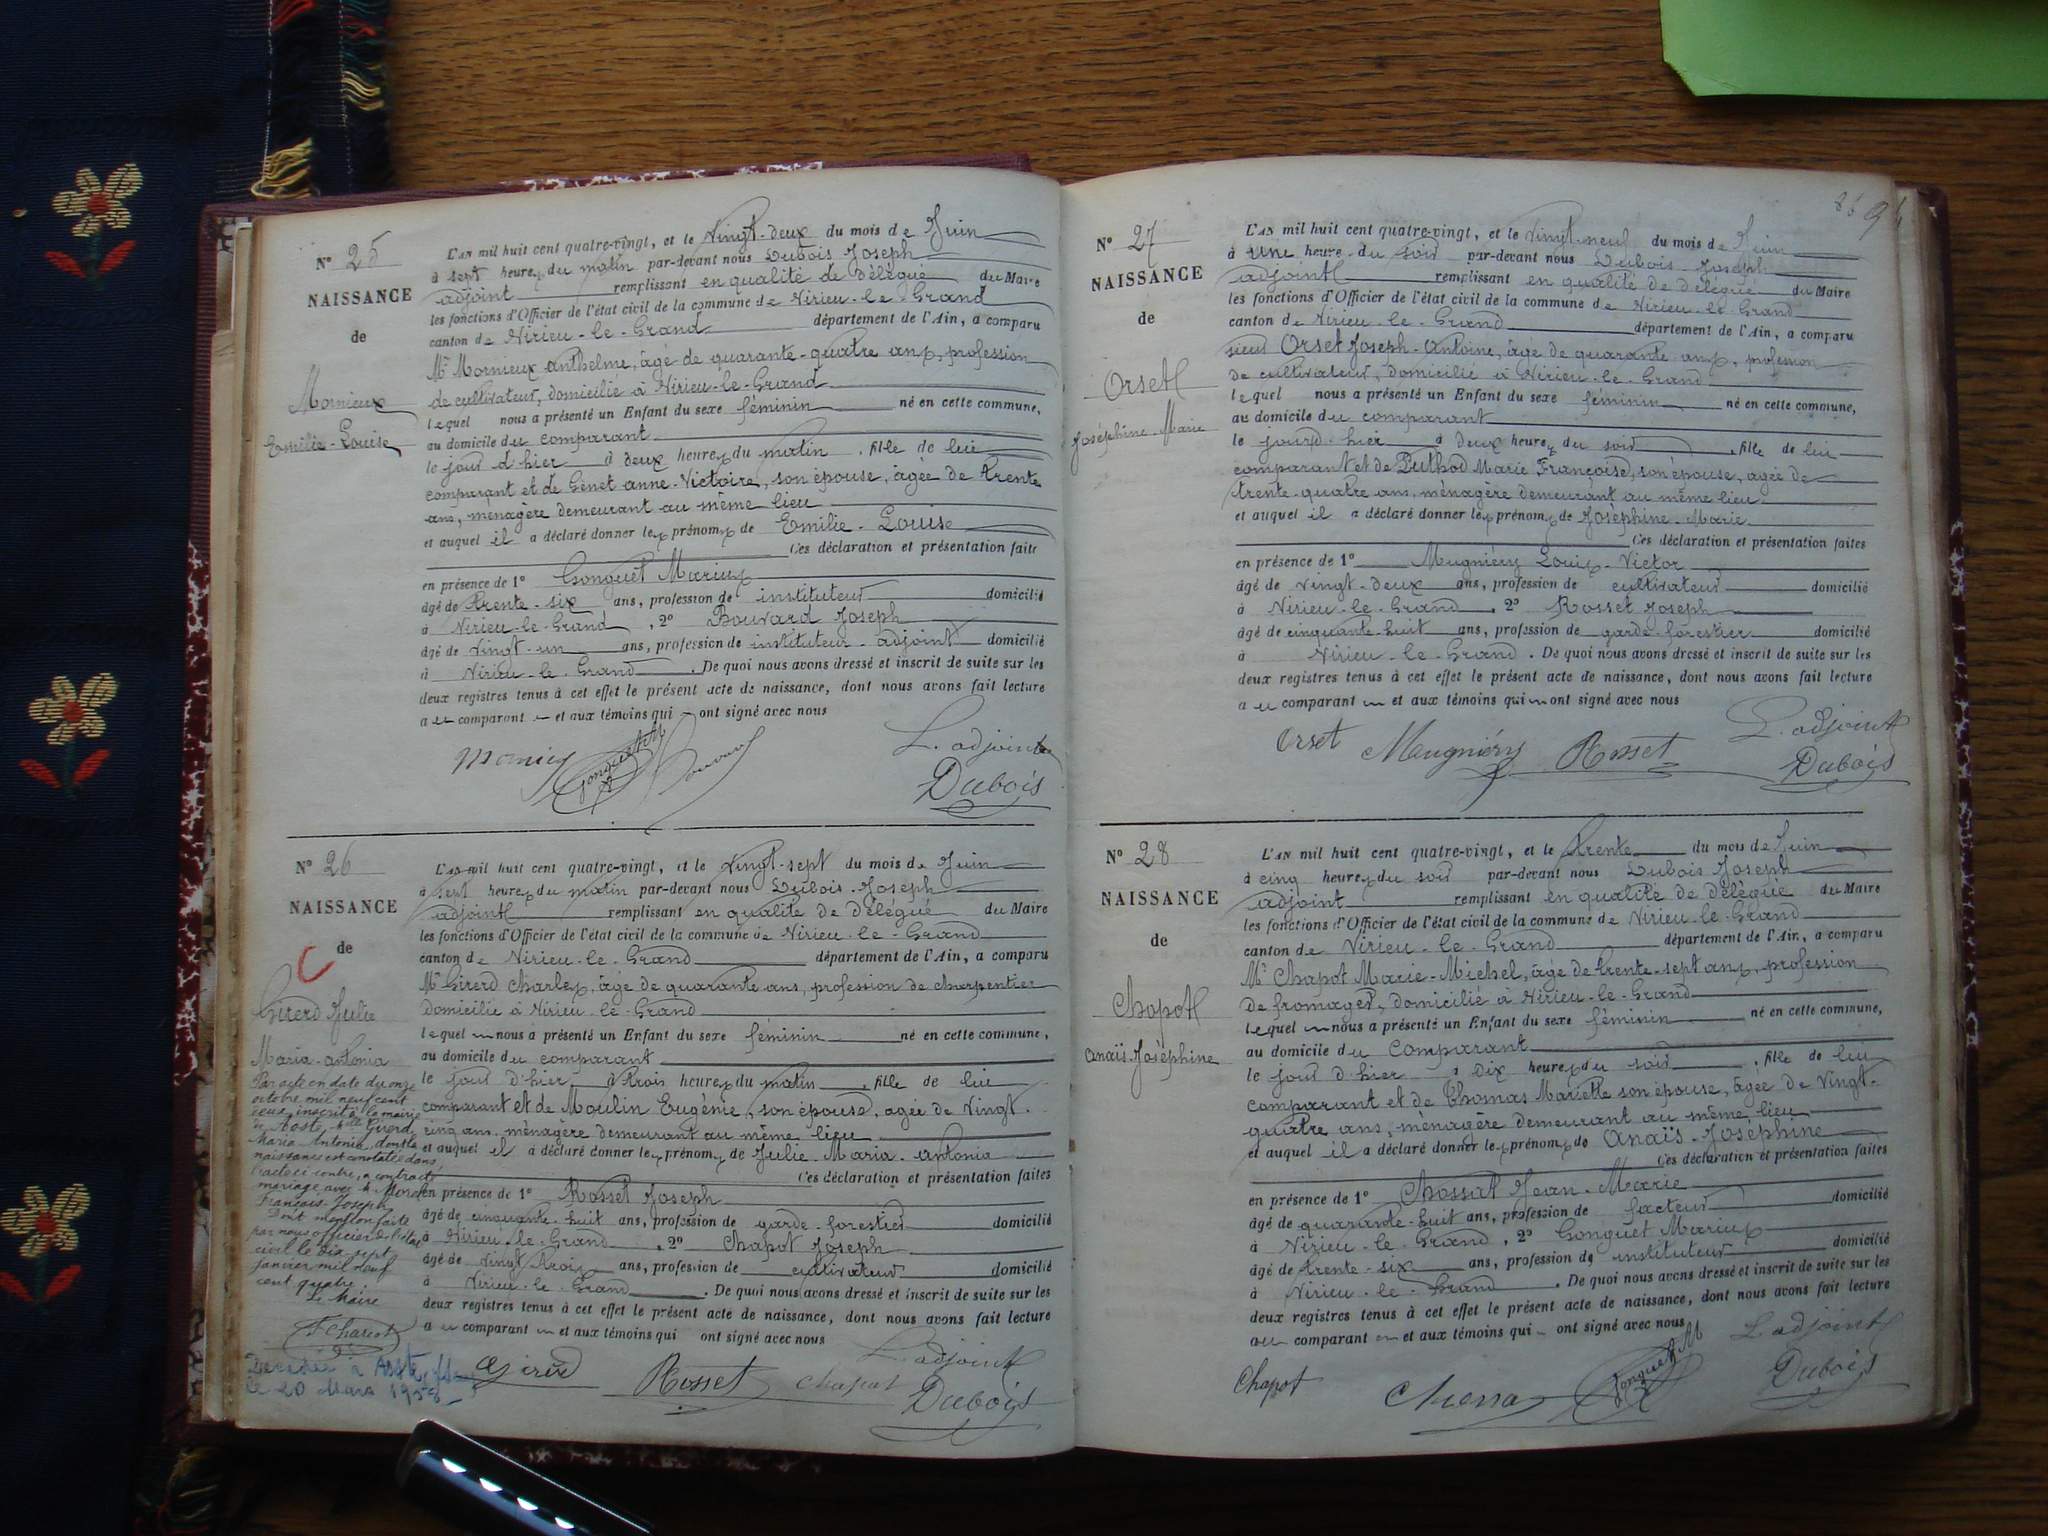 N° 25
NAISSANCE
de
Mornieux
Emilie-Louise
L'AN mil huit cent quatre-vingt, et le Vingt-deux du mois de Juin
à sept heures du matin par-devant nous Dubois Joseph
adjoint remplissant en qualité de délégué du Maire
les fonctions d'Officier de l'état civil de la commune de Virieu-le-Grand
canton de Virieu-le-Grand département de l'Ain, a comparu
Mr Mornieux Anthelme, âgé de quarante-quatre ans, profession
de cultivateur, domicilié à Virieu-le-Grand
lequel nous a présenté un Enfant du sexe féminin né en cette commune,
au domicile du comparant
le jour d'hier à deux heures du matin, fille de lui
comparant et de Genet Anne-Victoire, son épouse, âgée de trente
ans, ménagère demeurant au même lieu
et auquel il a déclaré donner les prénoms de Emilie-Louise
Ces déclaration et présentation faites
en présence de 1° Gonguet Marius
âgé de trente-six ans, profession de instituteur domicilié
à Virieu-le-Grand, 2° Bouvard Joseph
âgé de vingt-un ans, profession de instituteur-adjoint domicilié
à Virieu-le-Grand. De quoi nous avons dressé et inscrit de suite sur les
deux registres tenus à cet effet le présent acte de naissance, dont nous avons fait lecture
au comparant et aux témoins qui ont signé avec nous
L'adjoint
Gonguet M
Dubois
N° 26
NAISSANCE
de
C
Girerd Julie
Maria-Antonia
Par acte en date du onze
octobre mil neuf cent
deux, inscrit à la mairie
d'Aoste, Mlle Girerd
Maria Antonia, dont la
naissance est constatée dans
l'acte ci contre, a contracté
mariage avec M. Morel
François-Joseph
Dont mention faite
par nous officier de l'état
civil le dix sept
janvier mil neuf
cent quatre.
Le Maire
Décédée à Aoste
le 20 Mars 1958
L'AN mil huit cent quatre-vingt, et le Vingt-sept du mois de Juin
à sept heures du matin par-devant nous Dubois-Joseph
adjoint remplissant en qualité de délégué du Maire
les fonctions d'Officier de l'état civil de la commune de Virieu-le-Grand
canton de Virieu-le-Grand département de l'Ain, a comparu
Mr Girerd Charles, âgé de quarante ans, profession de charpentier
domicilié à Virieu-le-Grand
lequel nous a présenté un Enfant du sexe féminin né en cette commune,
au domicile du comparant
le jour d'hier à trois heures du matin, fille de lui
comparant et de Moulin Eugénie, son épouse, agée de Vingt-
cinq ans, ménagère demeurant au même lieu
et auquel il a déclaré donner les prénoms de Julie-Maria-Antonia
Ces déclaration et présentation faites
en présence de 1° Rosset Joseph
âgé de cinquante-huit ans, profession de garde-forestier domicilié
à Virieu-le-Grand, 2° Chapot Joseph
âgé de vingt trois ans, profession de cultivateur domicilié
à Virieu-le-Grand. De quoi nous avons dressé et inscrit de suite sur les
deux registres tenus à cet effet le présent acte de naissance, dont nous avons fait lecture
au comparant et aux témoins qui ont signé avec nous
L'adjoint
Girerd Rosset Chapot Dubois
N° 27
NAISSANCE
de
Orset
Joséphine-Marie
L'AN mil huit cent quatre-vingt, et le Vingt-neuf du mois de Juin
à une heure du soir par-devant nous Dubois Joseph
adjoint remplissant en qualité de délégué du Maire
les fonctions d'Officier de l'état civil de la commune de Virieu-le-Grand
canton de Virieu-le-Grand département de l'Ain, a comparu
sieur Orset Joseph-Antoine, âgé de quarante ans, profession
de cultivateur, domicilié à Virieu-le-Grand
lequel nous a présenté un Enfant du sexe féminin né en cette commune,
au domicile du comparant
le jourd-hier à deux heures du soir, fille de lui
comparant et de Puthod Marie Françoise, son épouse, agée de
trente-quatre ans, ménagère demeurant au même lieu
et auquel il a déclaré donner les prénoms de Joséphine-Marie
Ces déclaration et présentation faites
en présence de 1° Mugniéry Louis-Victor
âgé de vingt-deux ans, profession de cultivateur domicilié
à Virieu-le-Grand, 2° Rosset Joseph
âgé de cinquante huit ans, profession de garde-forestier domicilié
à Virieu-le-Grand. De quoi nous avons dressé et inscrit de suite sur les
deux registres tenus à cet effet le présent acte de naissance, dont nous avons fait lecture
au comparant et aux témoins qui ont signé avec nous
L'adjoint
Orset Meugniéry Rosset Dubois
N° 28
NAISSANCE
de
Chapot
Anaïs-Joséphine
L'AN mil huit cent quatre-vingt, et le trente du mois de Juin
à cinq heures du soir par-devant nous Dubois Joseph
adjoint remplissant en qualité de délégué du Maire
les fonctions d'Officier de l'état civil de la commune de Virieu-le-Grand
canton de Virieu-le-Grand département de l'Ain, a comparu
Mr Chapot Marie-Michel, âgé de trente-sept ans, profession
de fromager, domicilié à Virieu-le-Grand
lequel nous a présenté un Enfant du sexe féminin né en cette commune,
au domicile du comparant
le jour d'hier à dix heures du soir, fille de lui
comparant et de Thomas Mariette son épouse, âgée de Vingt-
quatre ans, ménagère demeurant au même lieu
et auquel il a déclaré donner les prénoms de Anaïs-Joséphine
Ces déclaration et présentation faites
en présence de 1° Chossat Jean-Marie
âgé de quarante-huit ans, profession de facteur domicilié
à Virieu-le-Grand, 2° Gonguet Marius
âgé de trente-six ans, profession de instituteur domicilié
à Virieu-le-Grand. De quoi nous avons dressé et inscrit de suite sur les
deux registres tenus à cet effet le présent acte de naissance, dont nous avons fait lecture
au comparant et aux témoins qui ont signé avec nous
L'adjoint
Chapot Gonguet M Dubois